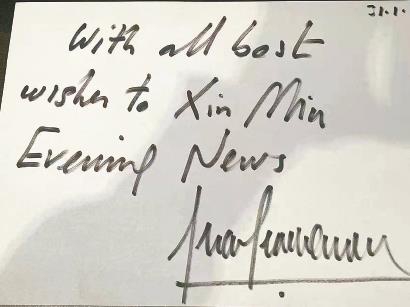 31.1.
With all best
wishes to Xin Min
Evening News